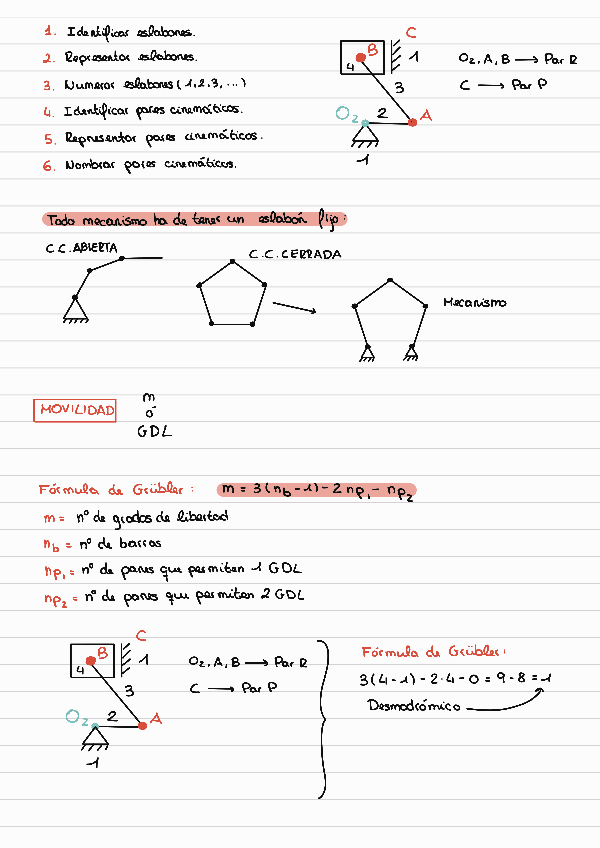 1. Identificar eslabones.
2. Representar eslabones.
3. Numerar eslabones (1,2,3, ...)
4. Identificar pares cinemáticos.
5. Representar pares cinemáticos.
6. Nombrar pares cinemáticos.
C
B
4
1
3
O2
2
A
1
O2, A, B → Par R
C → Par P
Todo mecanismo ha de tener un eslabón fijo:
C.C. ABIERTA
C.C. CERRADA
Mecanismo
MOVILIDAD
m
ó
GDL
Fórmula de Grübler: m = 3(nb - 1) - 2np1 - np2
m = nº de grados de libertad
nb = nº de barras
np1 = nº de pares que permiten 1 GDL
np2 = nº de pares que permiten 2 GDL
C
B
4
1
3
O2
2
A
1
O2, A, B → Par R
C → Par P
Fórmula de Grübler:
3(4-1) - 2·4 - 0 = 9 - 8 = 1
Desmodrómico